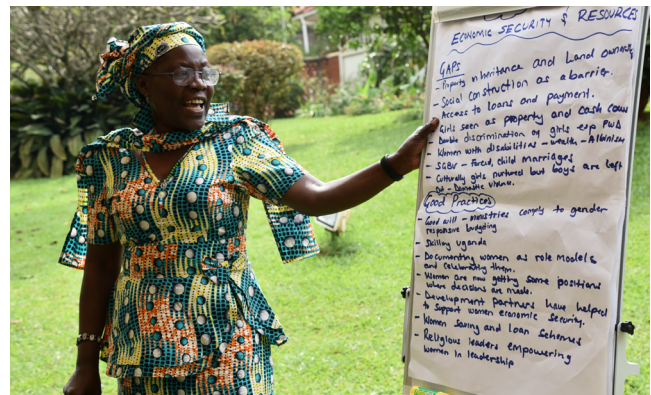 ECONOMIC SECURITY & RESOURCES
GAPS
- Property inheritance and Land ownership
- Social construction as a barrier.
- Access to loans and payment.
- Girls seen as property and cash cows
- Double discrimination of girls esp PWD
- Women with disabilities - wealth, - Albinism
- SGBV - Forced, child marriages
- Culturally girls nurtured but boys are left
out - Domestic violence.
Good Practices
- Good will - Ministries comply to gender
responsive budgeting
- Skilling Uganda
- Documenting women as role models
and celebrating them.
- Women are now getting some positions
where decisions are made.
- Development partners have helped
to support women economic security.
- Women saving and loan schemes
- Religious leaders empowering
women in leadership